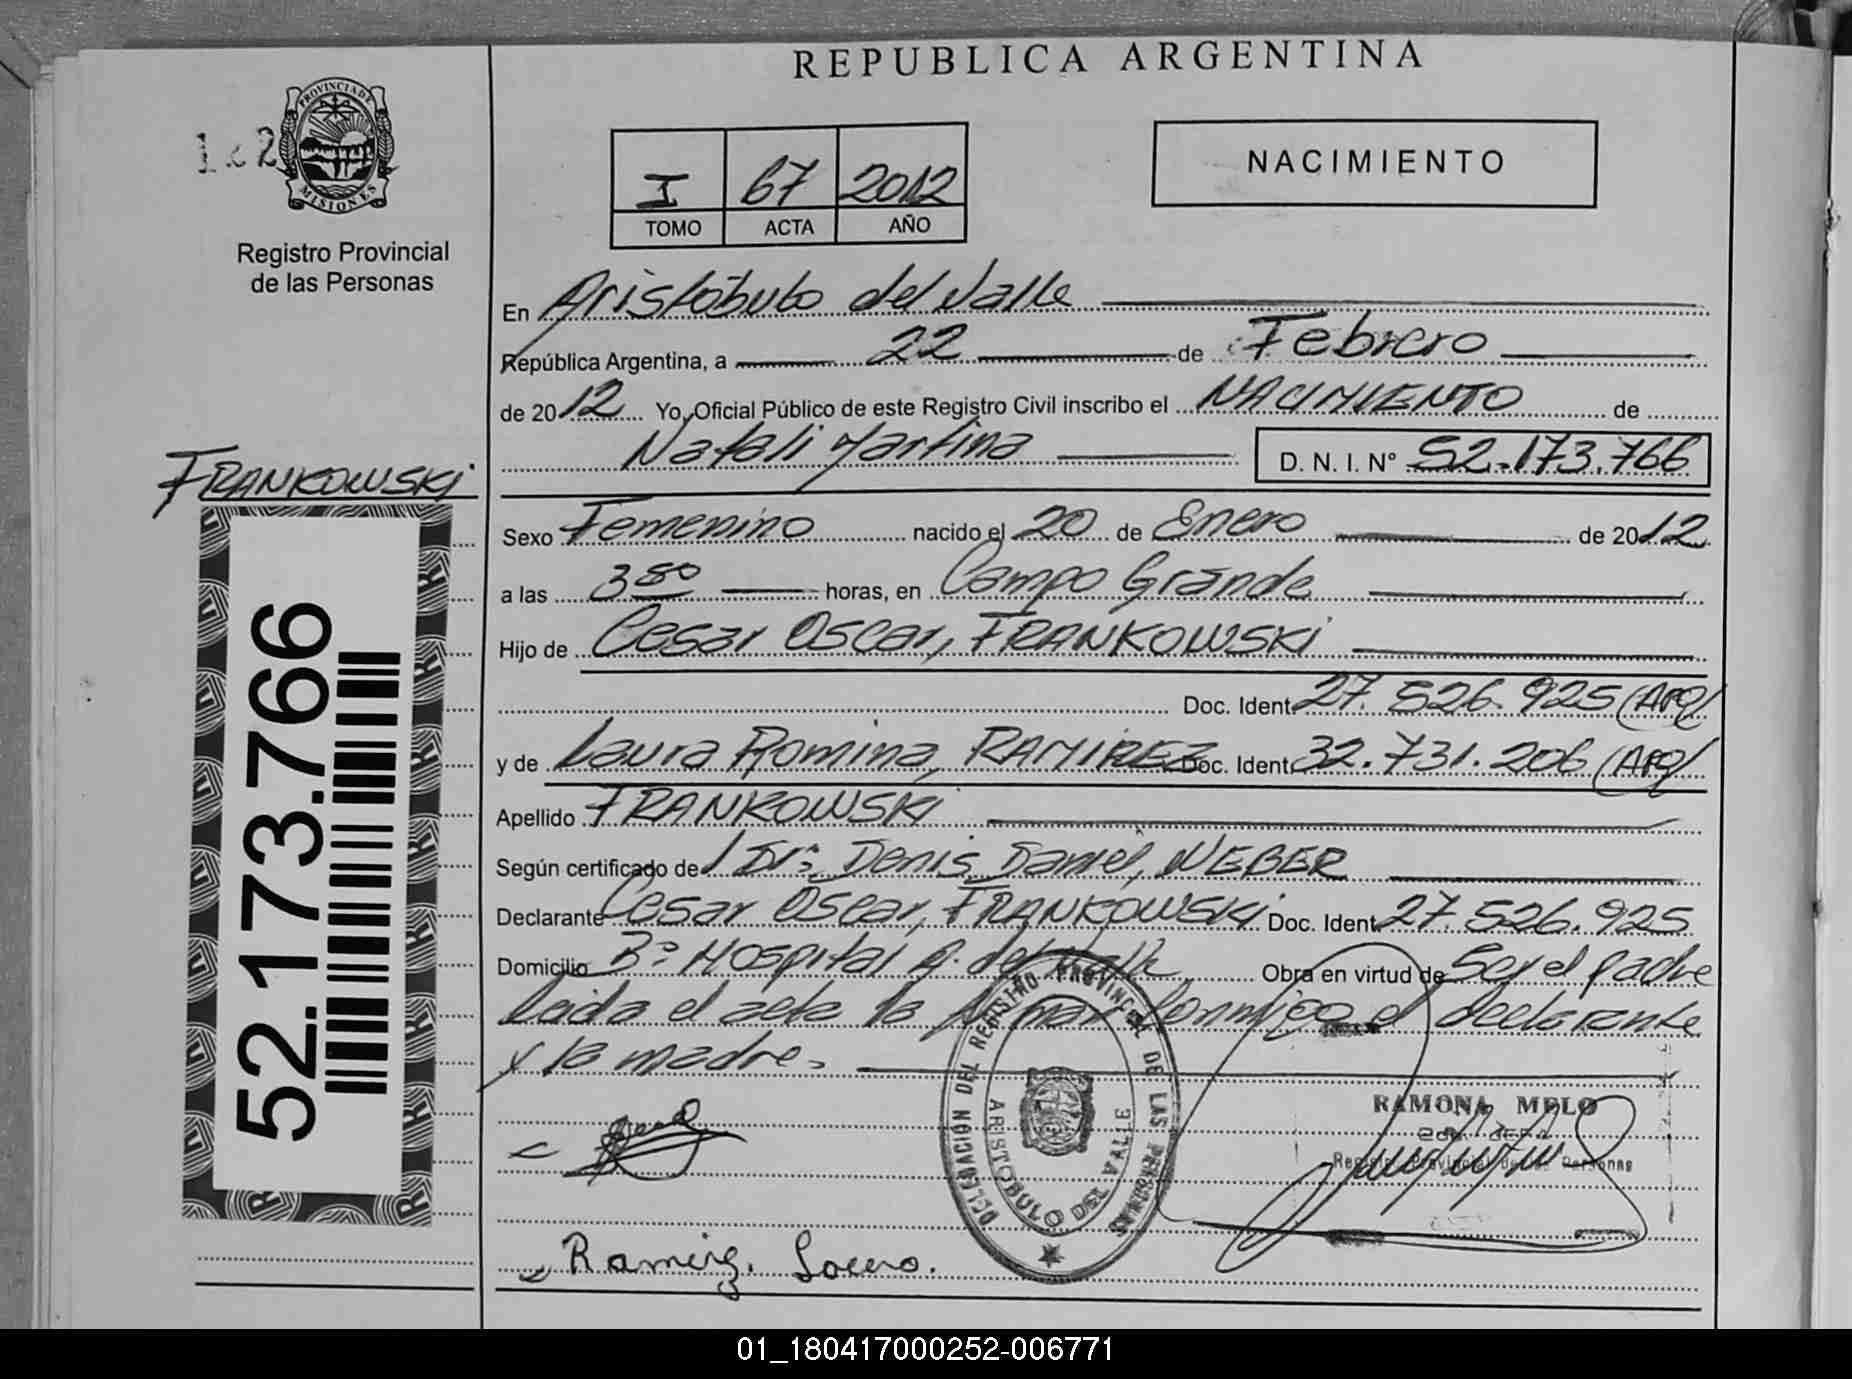 REPUBLICA ARGENTINA
PROVINCIA DE
MISIONES
Registro Provincial
de las Personas
I 67 2012
TOMO ACTA AÑO
NACIMIENTO
En Aristóbulo del Valle
República Argentina, a 22 de Febrero
de 2012 Yo, Oficial Público de este Registro Civil inscribo el NACIMIENTO de
Natali Martina D. N. I. Nº 52.173.766
FRANKOWSKI
Sexo Femenino nacido el 20 de Enero de 2012
a las 3 50 horas, en Campo Grande
Hijo de Cesar Oscar, FRANKOWSKI
Doc. Ident. 27.526.925 (Arg)
y de Laura Romina, RAMIREZ Doc. Ident. 32.731.206 (Arg)
Apellido FRANKOWSKI
Según certificado de Dr: Denis Daniel, WEBER
Declarante Cesar Oscar, FRANKOWSKI Doc. Ident. 27.526.925
Domicilio Bº Hospital A. del Valle Obra en virtud de Ser el padre
Leida el acta la firman conmigo el declarante
y la madre.
52.173.766
DELEGACION DEL REGISTRO PROVINCIAL DE LAS PERSONAS
ARISTOBULO DEL VALLE
RAMONA MELO
Registro Provincial de las Personas
Ramirez.
01_180417000252-006771